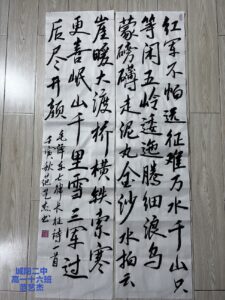 红军不怕远征难万水千山只
等闲五岭逶迤腾细浪乌
蒙磅礴走泥丸金沙水拍云
崖暖大渡桥横铁索寒
更喜岷山千里雪三军过
后尽开颜
毛泽东七律长征诗一首
壬寅秋范艺杰书
城阳二中
高一十六班
范艺杰